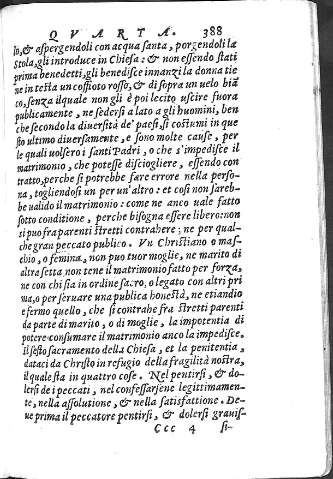 QVARTA. 388
lo, & aspergendoli con acqua santa, porgendoli la
Stola, gli introduce in Chiesa: & non essendo stati
prima benedetti, gli benedisce innanzi la donna tie
ne in testa un coffioto rosso, & di sopra un uelo biã
co, senza il quale non gli è poi lecito uscire fuora
publicamente, ne sedersi a lato a gli huomini, ben
che secondo la diuersità de' paesi, si costumi in que
sto ultimo diuersamente, e sono molte cause, per
le quali uolsero i santi Padri, o che s'impedisce il
matrimonio, che potesse disciogliere, essendo con
tratto, perche si potrebbe fare errore nella perso-
na, togliendosi un per un'altro: et così non sareb-
be ualido il matrimonio: come ne anco uale fatto
sotto conditione, perche bisogna essere libero: non
si può fra parenti stretti contrahere; ne per qual-
che gran peccato publico. Vn Christiano o mas-
chio, o femina, non può tuor moglie, ne marito di
altra setta non tene il matrimonio fatto per forza,
ne con chi sia in ordine sacro, o legato con altri pri
ma, o per seruare una publica honestà, ne etiandio
e fermo quello, che si contrahe fra stretti parenti
da parte di marito, o di moglie, la impotentia di
potere consumare il matrimonio anco la impedisce.
Il sesto sacramento della Chiesa, et la penitentia,
dataci da Christo in refugio della fragilità nostra,
il quale sta in quattro cose. Nel pentirsi, & do-
lersi de i peccati, nel confessarsene legittimamen-
te, nella assolutione, & nella satisfattione. De-
ue prima il peccatore pentirsi, & dolersi grauis-
CCC 4 si-